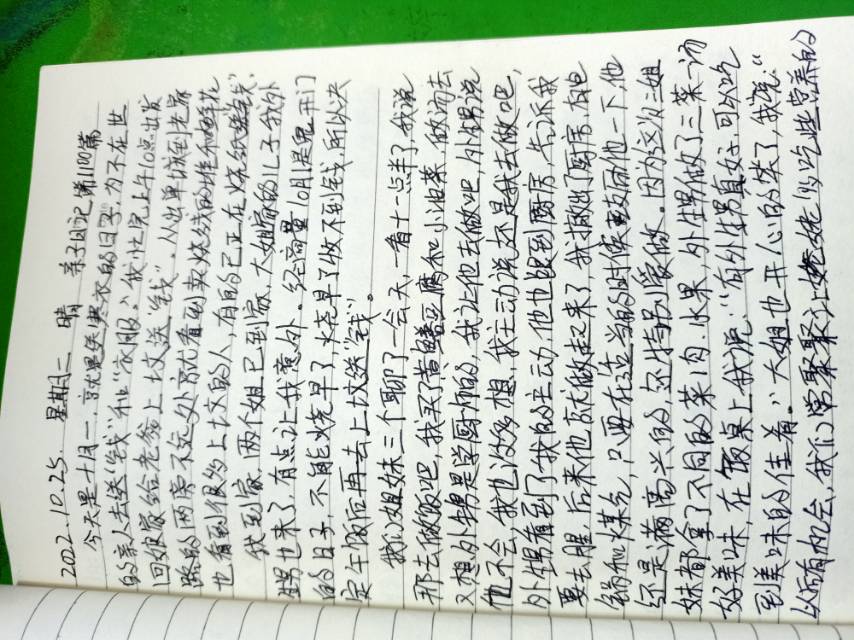 2022.10.25. 星期二 晴 亲子日记 第1100篇
今天是十月一,就是送寒衣的日子,为不在世
的亲人去送"钱"和"衣服"。我忙完上午10点出发
回娘家给老爸上坟送"钱"。从出单城到老家
路的两旁不远处就看到卖烧纸的摊和鲜花
也看到很多上坟的人,有的已正在烧纸送钱。
我到家,两个姐已到家,大姐家的儿子我外
甥也来了,有点让我意外。经商量10月1是鬼开门
的日子,不能烧早了,烧早了收不到钱,所以决
定午饭后再去上坟送"钱"。
我们姐妹三个聊了一会天,看十一点半了,我说
那去做饭吧,我买了豆腐和小油菜,做汤去
又想外甥是学厨师的,我让他去做吧,外甥说
他不会,我也没多想,我主动说还是我去做吧,
外甥看到了我的主动,他也跟到厨房,告诉我
要去腥,后来他就做起来了,我撤出了厨房,在他
锅和煤气,只要在适当的时候来回他一下,他
还是满高兴的,还特别爱做。因为这次三姐
妹都拿了不同的菜、肉、水果,外甥做了三菜一汤
好美味,在饭桌上我说:"有外甥真好,可以吃
到美味的佳肴。"大姐也开心的笑了,我说:"
以后有机会,我们常聚聚,让姥姥吃些营养的